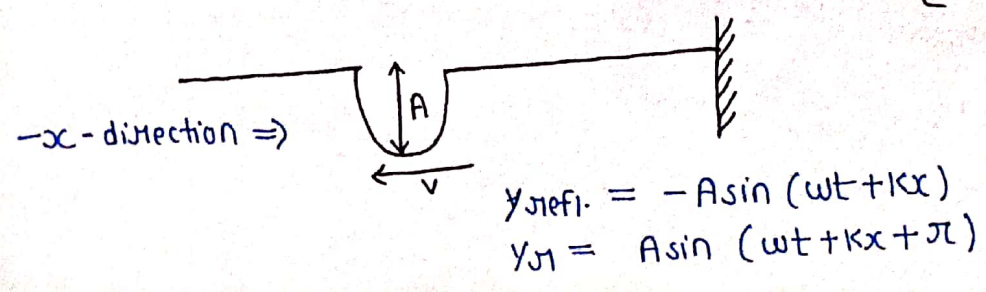 A
-x-direction ⇒
v
y refl. = -A sin (ωt + kx)
yr = A sin (ωt + kx + π)